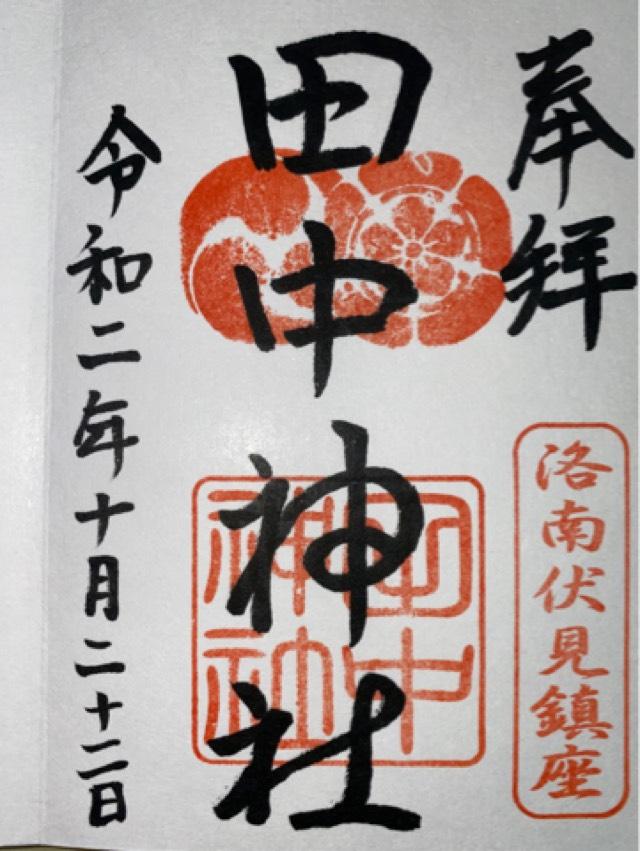 奉拝
洛南伏見鎮座
田中神社
田中
神社
令和二年十月二十二日